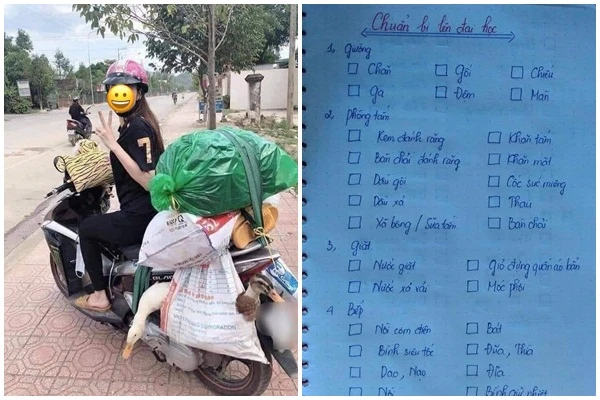 Chuẩn bị lên đại học
1, Giường
Chăn Gối Chiếu
Ga Đệm Màn
2, Phòng tắm
Kem đánh răng Khăn tắm
Bàn chải đánh răng Khăn mặt
Dầu gội Cốc súc miệng
Dầu xả Thau
Xà bông / Sữa tắm Bàn chải
3, Giặt
Nước giặt Giỏ đựng quần áo bẩn
Nước xả vải Móc phơi
4 Bếp
Nồi cơm điện Bát
Bình siêu tốc Đũa, Thìa
Dao, Nạo Đĩa
Nồi Bình giữ nhiệt
7